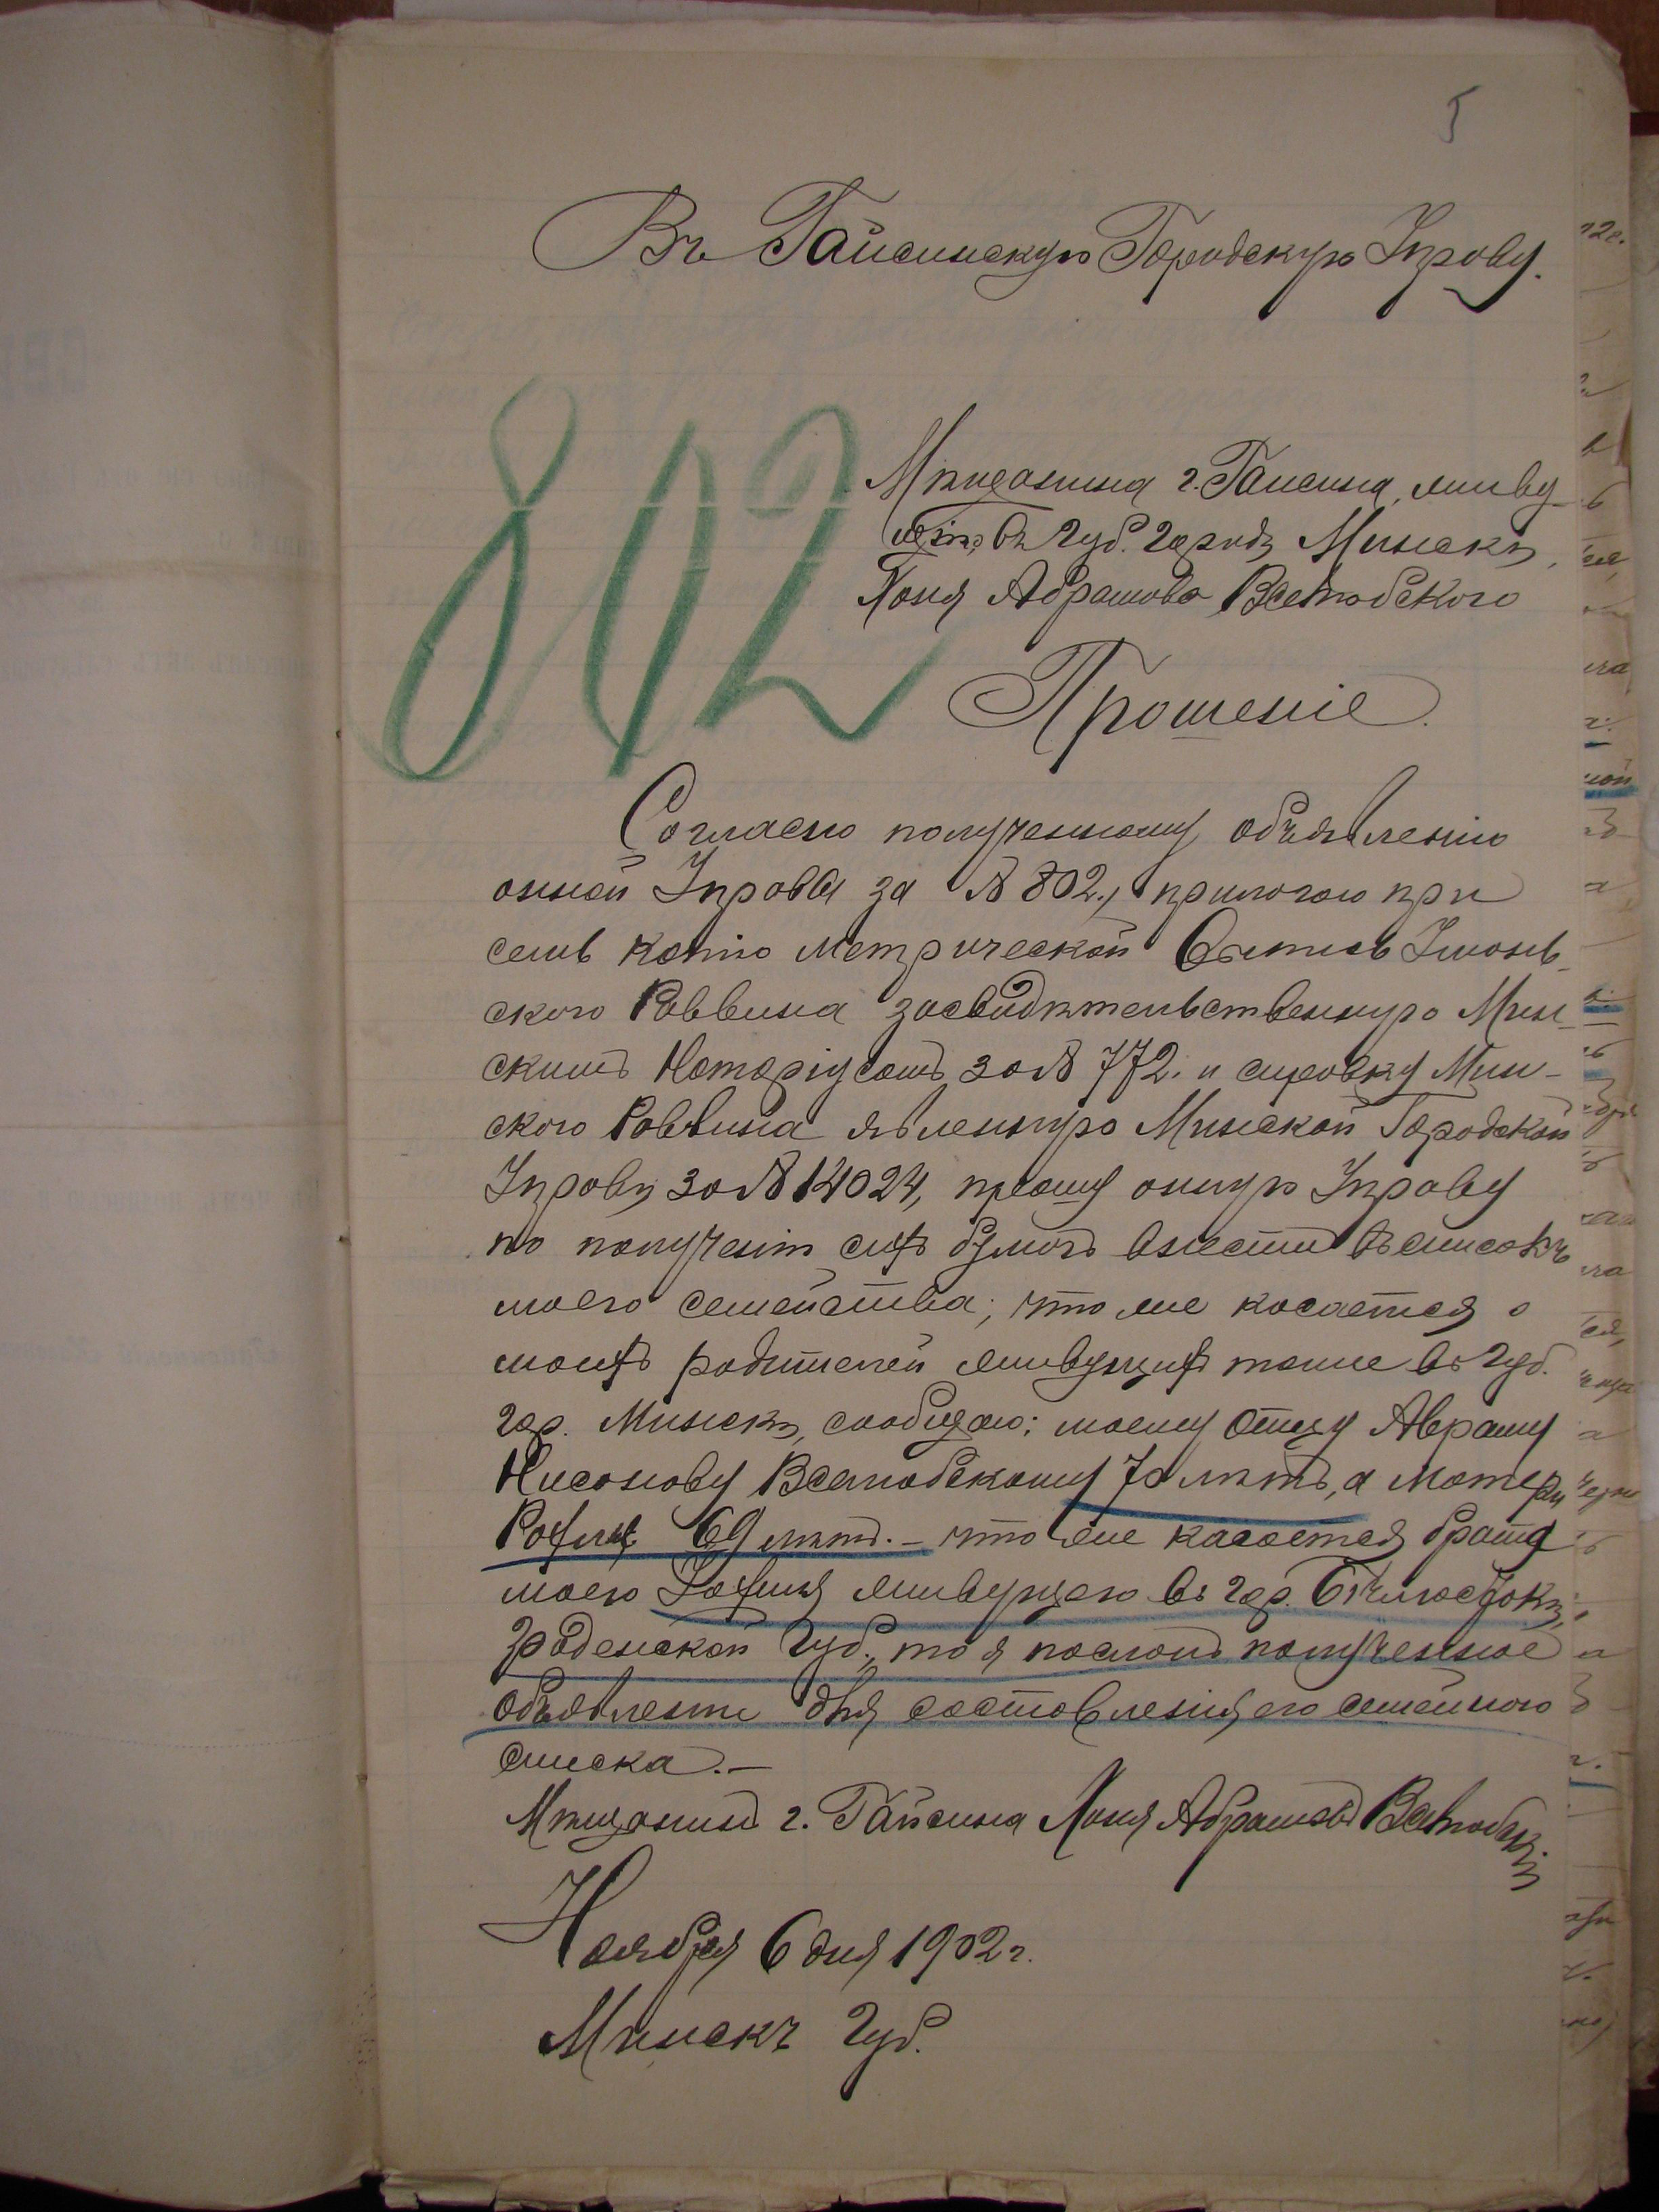 5
Въ Гайсинскую Городскую Управу.
802
Мѣщанина г. Гайсина, живу-
щаго въ губ. городѣ Минскѣ,
Хоня Абрамова Всетюбского
Прошеніе.
Согласно полученному объявленію
онной Управы за № 802., прилогаю при
семъ копію метрической выписъ Умонь-
ского Раввина засвидѣтельственную Мин-
скимъ Нотаріусомъ за № 772. и справку Мин-
ского Раввина явленную Минской Городской
Управѣ за № 14024, прошу онную Управу
по полученіи сихъ бумагъ внести въ списокъ
моего семейства; что же касается о
моихъ родителей живущихъ тоже въ губ.
гор. Минскѣ, сообщаю: моему отцу Авраму
Нисонову Всетюбскому 70 лѣтъ, а матери
Рохли 69 лѣтъ. – что же касается брата
моего живущаго въ гор. Бѣлостокѣ,
Гродненской губ., то я послалъ полученное
объявленіе для составленія его семейного
списка. –
Мѣщанинъ г. Гайсина Хоня Абрамовъ Всетюбскій
Ноября 6 дня 1902 г.
Минскъ Губ.